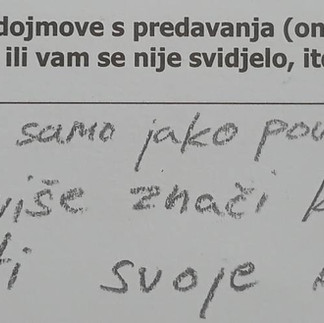 dojmove s predavanja (on
ili vam se nije svidjelo, it
samo jako pou
više znači k
ti svoje